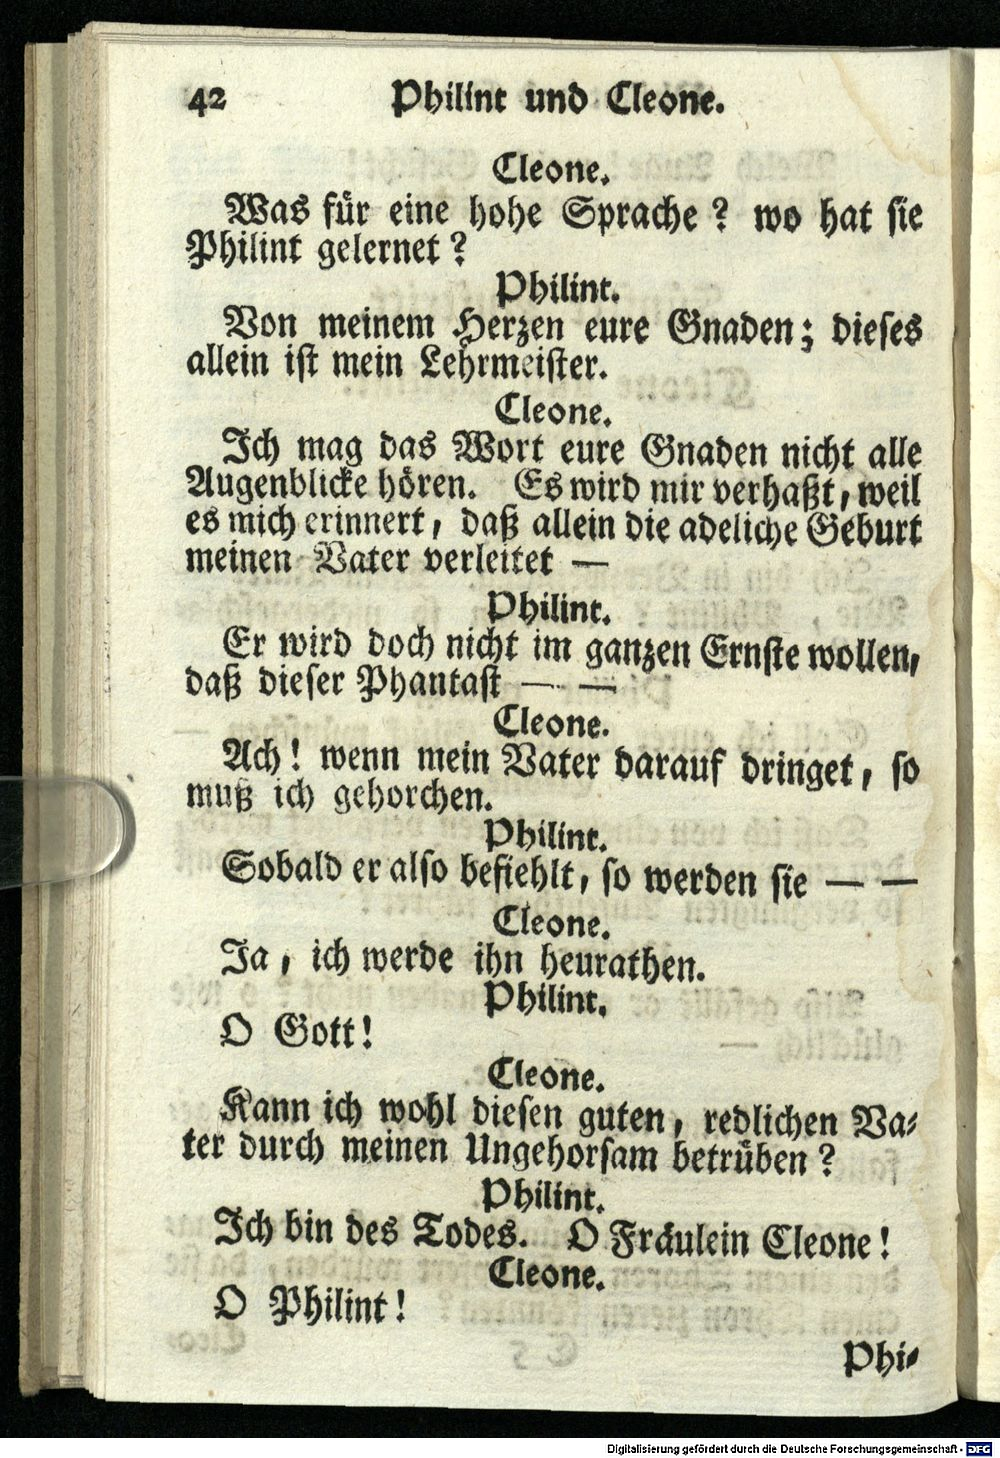 42 Philint und Cleone.
Cleone.
Was für eine hohe Sprache? wo hat sie
Philint gelernet?
Philint.
Von meinem Herzen eure Gnaden; dieses
allein ist mein Lehrmeister.
Cleone.
Ich mag das Wort eure Gnaden nicht alle
Augenblicke hören. Es wird mir verhaßt, weil
es mich erinnert, daß allein die adeliche Geburt
meinen Vater verleitet —
Philint.
Er wird doch nicht im ganzen Ernste wollen,
daß dieser Phantast — —
Cleone.
Ach! wenn mein Vater darauf dringet, so
muß ich gehorchen.
Philint.
Sobald er also befiehlt, so werden sie — —
Cleone.
Ja, ich werde ihn heurathen.
Philint.
O Gott!
Cleone.
Kann ich wohl diesen guten, redlichen Va-
ter durch meinen Ungehorsam betrüben?
Philint.
Ich bin des Todes. O Fräulein Cleone!
Cleone.
O Philint!
Phi-
Digitalisierung gefördert durch die Deutsche Forschungsgemeinschaft - DFG